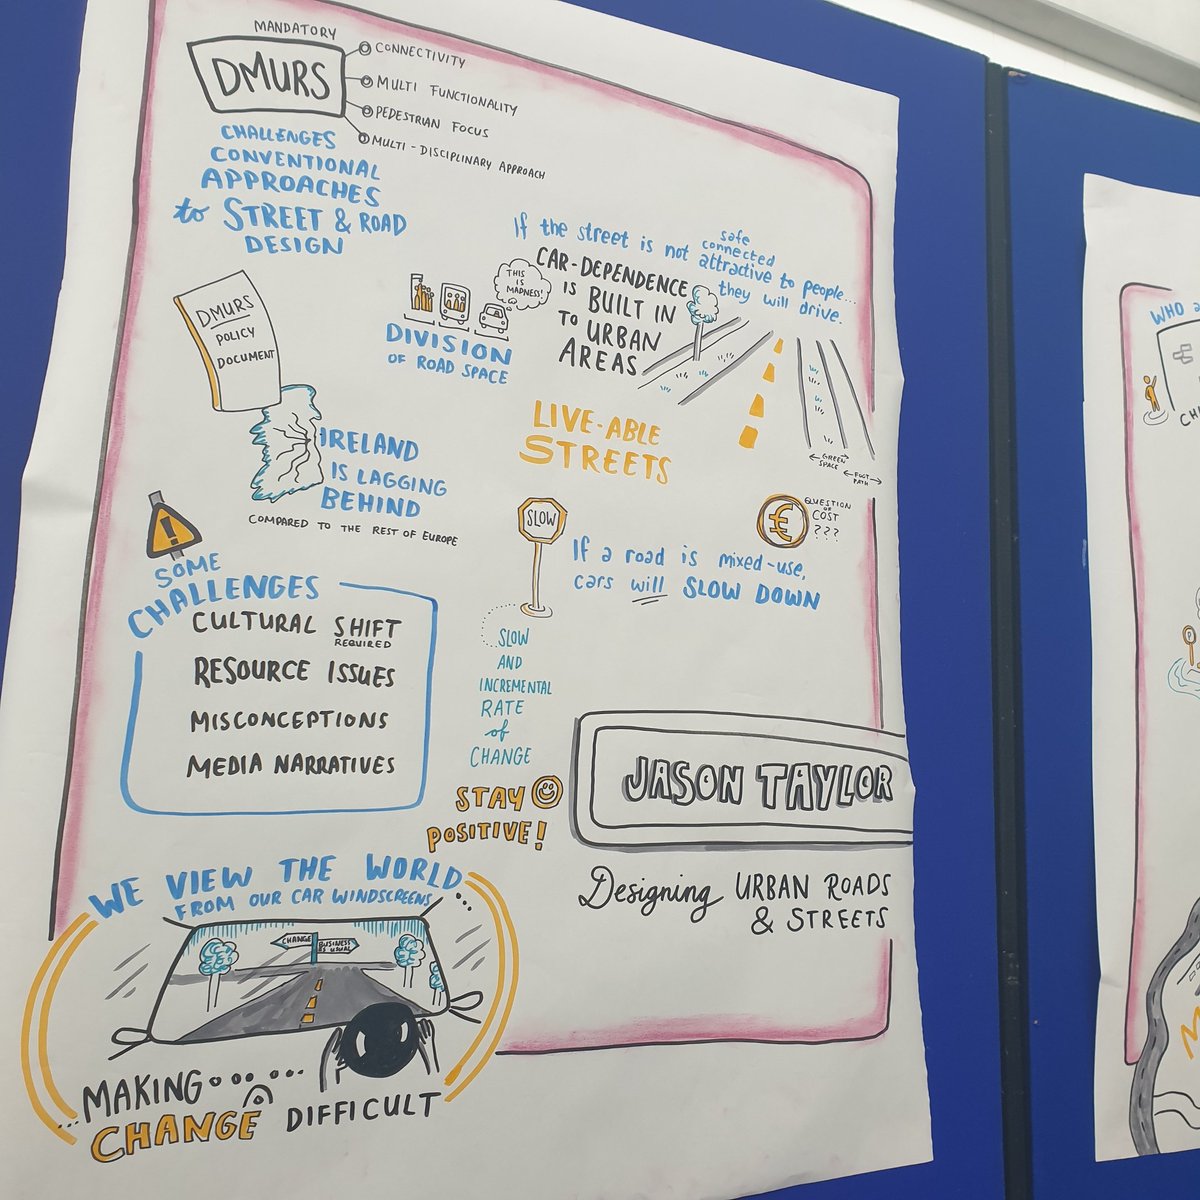 MANDATORY
DMURS
CONNECTIVITY
MULTI FUNCTIONALITY
PEDESTRIAN FOCUS
MULTI-DISCIPLINARY APPROACH
CHALLENGES
CONVENTIONAL
APPROACHES
to STREET & ROAD
DESIGN
DMURS
POLICY
DOCUMENT
IRELAND
IS LAGGING
BEHIND
COMPARED TO THE REST OF EUROPE
THIS
IS
MADNESS!
DIVISION
OF ROAD SPACE
If the street is not attractive to people...
safe
connected
they will drive.
CAR-DEPENDENCE
IS BUILT IN
TO URBAN
AREAS
GREEN
SPACE
FOOT
PATH
LIVE-ABLE
STREETS
€
QUESTION
OF
COST
???
SLOW
If a road is mixed-use,
cars will SLOW DOWN
SOME
CHALLENGES
CULTURAL SHIFT
REQUIRED
RESOURCE ISSUES
MISCONCEPTIONS
MEDIA NARRATIVES
...SLOW
AND
INCREMENTAL
RATE
of
CHANGE
STAY
POSITIVE!
JASON TAYLOR
Designing URBAN ROADS
& STREETS
WE VIEW THE WORLD
FROM OUR CAR WINDSCREENS...
CHANGE
BUSINESS
AS USUAL
...MAKING...
CHANGE DIFFICULT
WHO
CH